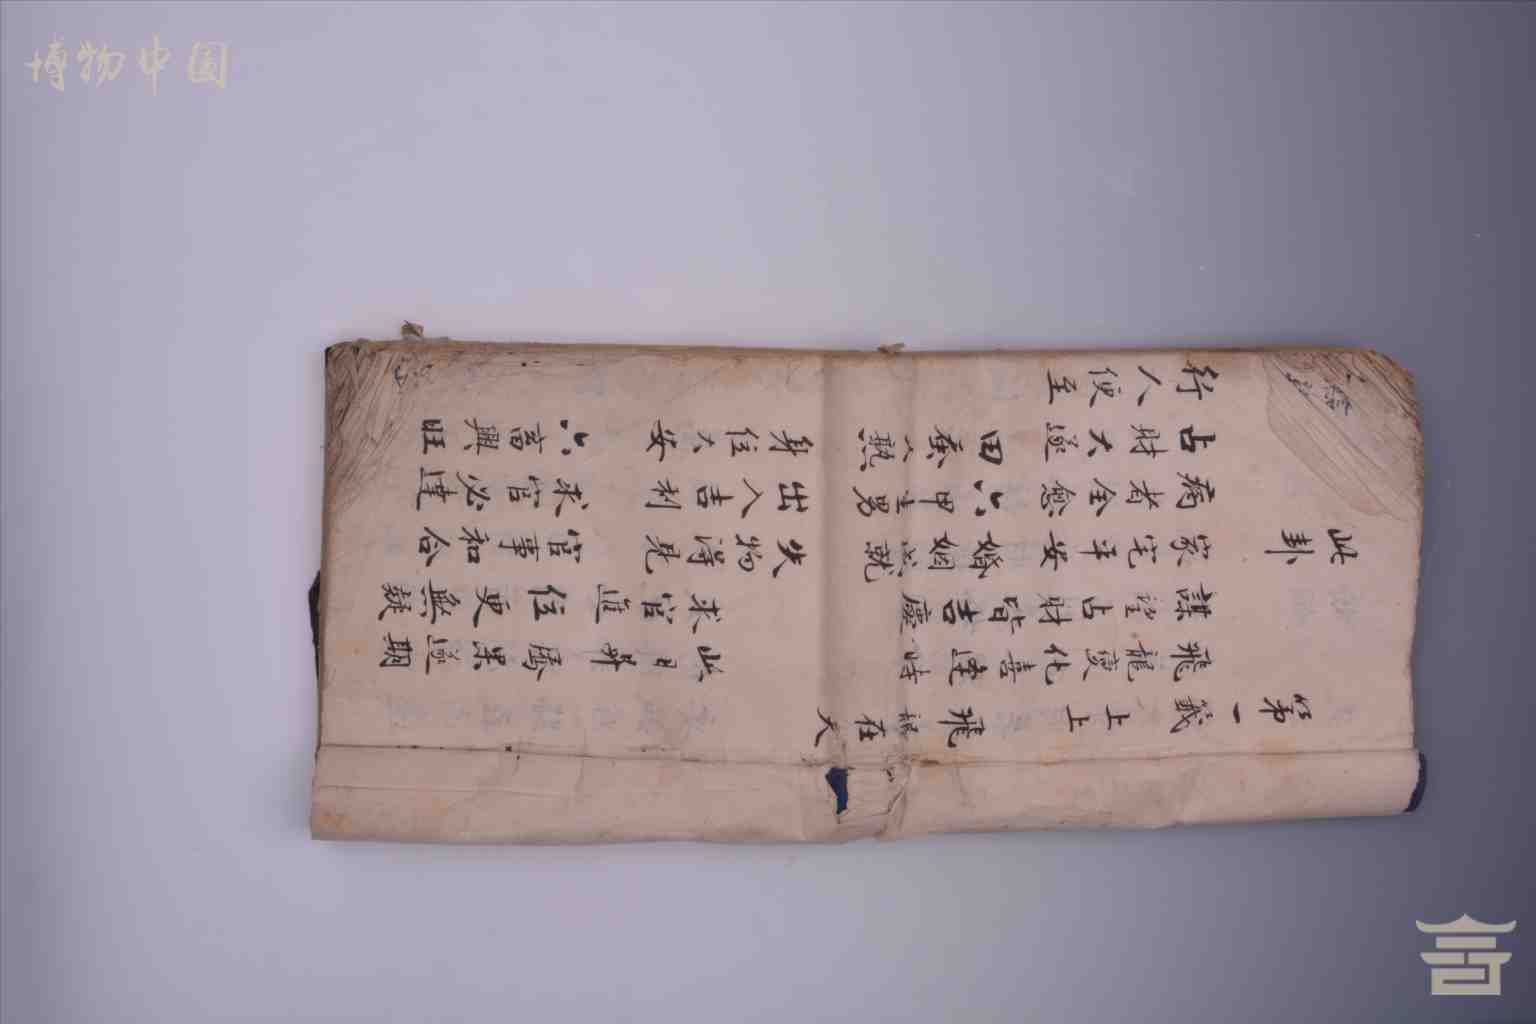 博物中国
第一籤 上上 飛龍在天
飛龍變化喜逢時 此日昇騰果遂期
謀望占財皆吉慶 求官進位更無疑
此卦 家宅平安 婚姻成就 失物得見 官事和合
病者全愈 六甲生男 出入吉利 求官必達
占財大遂 田蚕八熟 身位大安 六畜興旺
行人便至